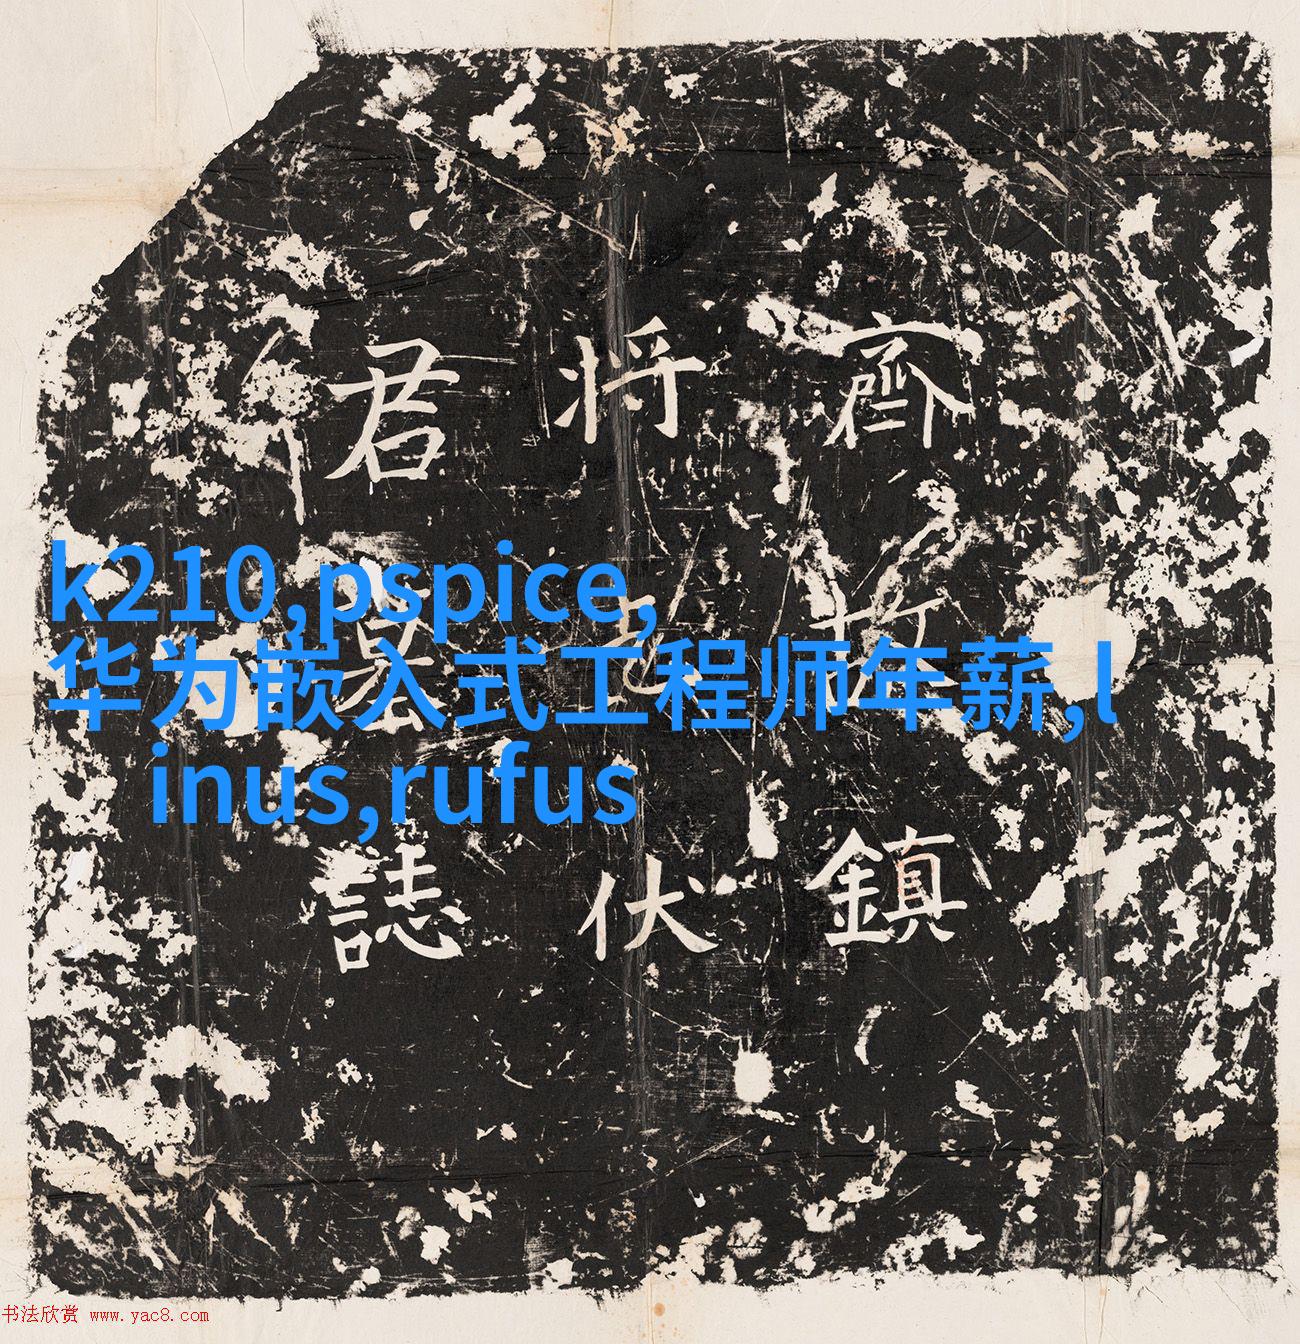 k210,pspice,
华为嵌入式工程师年薪,l
inus,rufus
齊故鎮
将乞伏
君墓誌
书法欣赏 www.yac8.com